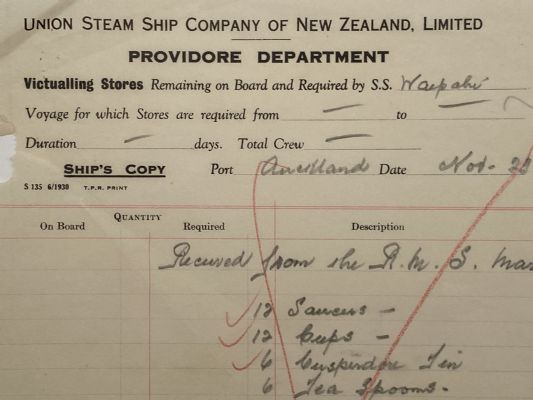 UNION STEAM SHIP COMPANY OF NEW ZEALAND, LIMITED
PROVIDORE DEPARTMENT
Victualling Stores Remaining on Board and Required by S.S. Waipahi
Voyage for which Stores are required from — to —
Duration — days. Total Crew —
SHIP'S COPY Port Auckland Date Nov. 23
S 135 6/1930 T.P.R. PRINT
QUANTITY
On Board Required Description
Received from the R.M.S.
12 Saucers —
12 Cups —
6 Cuspidore Tin
6 Tea Spoons -